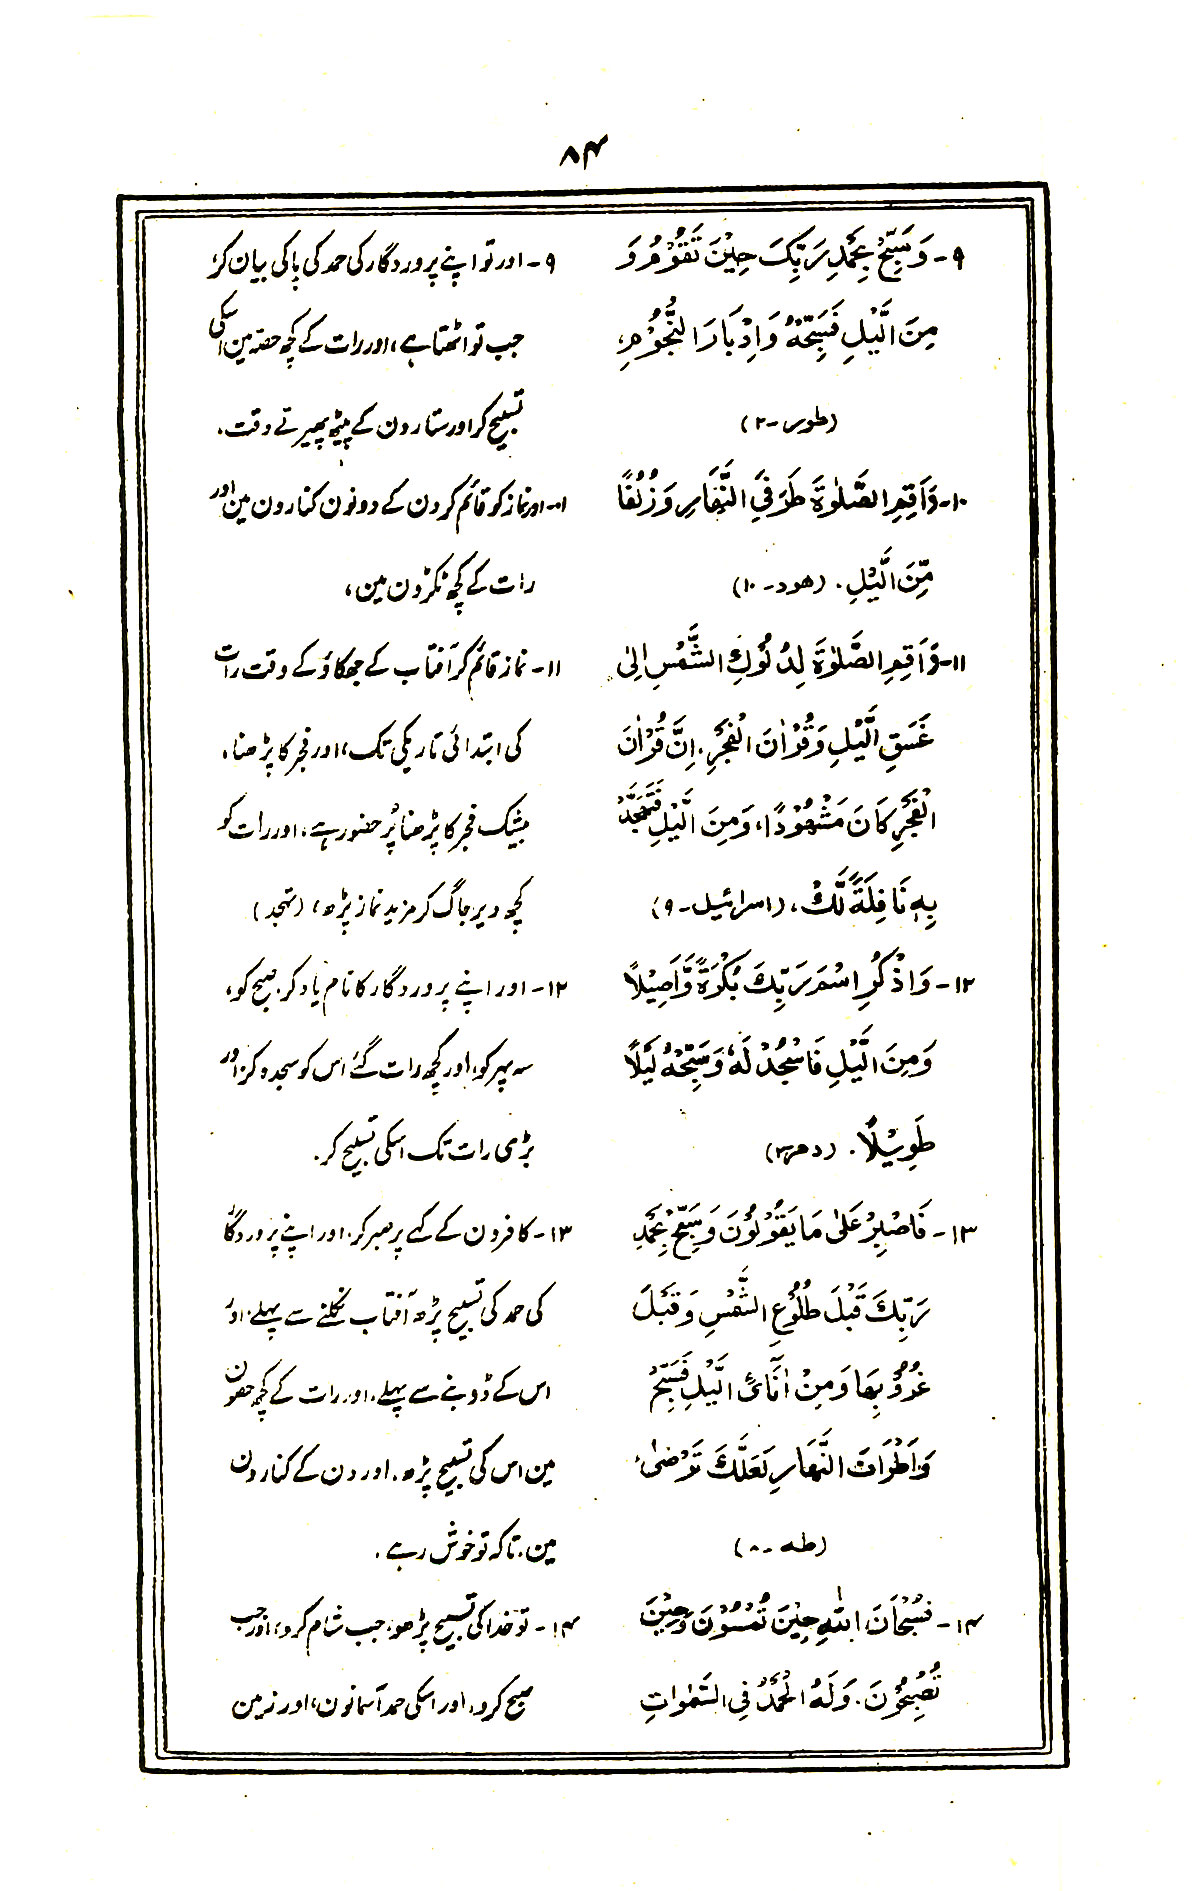 ۸۴
۹- وَسَبِّحْ بِحَمْدِ رَبِّكَ حِيْنَ تَقُوْمُ وَ
مِنَ الَّيْلِ فَسَبِّحْهُ وَاِدْبَارَ النُّجُوْمِ،
(طور-۲)
۱۰- وَاَقِمِ الصَّلٰوةَ طَرَفَيِ النَّهَارِ وَزُلَفًا
مِّنَ الَّيْلِ. (هود-۱۰)
۱۱- وَاَقِمِ الصَّلٰوةَ لِدُلُوْكِ الشَّمْسِ اِلىٰ
غَسَقِ الَّيْلِ وَقُرْاٰنَ الْفَجْرِ، اِنَّ قُرْاٰنَ
الْفَجْرِ كَانَ مَشْهُوْدًا، وَمِنَ الَّيْلِ فَتَهَجَّدْ
بِهٖ نَافِلَةً لَّكَ، (اسرائيل-۹)
۱۲- وَاذْكُرِ اسْمَ رَبِّكَ بُكْرَةً وَّاَصِيْلًا
وَمِنَ الَّيْلِ فَاسْجُدْ لَهٗ وَسَبِّحْهُ لَيْلًا
طَوِيْلًا. (دهر-۲)
۱۳- فَاصْبِرْ عَلىٰ مَا يَقُوْلُوْنَ وَسَبِّحْ بِحَمْدِ
رَبِّكَ قَبْلَ طُلُوْعِ الشَّمْسِ وَقَبْلَ
غُرُوْبِهَا وَمِنْ اٰنَآئِ الَّيْلِ فَسَبِّحْ
وَاَطْرَافَ النَّهَارِ لَعَلَّكَ تَرْضٰى
(طه-۸)
۱۴- فَسُبْحَانَ اللّٰهِ حِيْنَ تُمْسُوْنَ وَحِيْنَ
تُصْبِحُوْنَ. وَلَهُ الْحَمْدُ فِي السَّمٰوٰتِ
۹- اور تو اپنے پروردگار کی حمد کی پاکی بیان کر،
جب تو اٹھتا ہے، اور رات کے کچھ حصہ مین اسکی
تسبیح کر اور ستارون کے پیٹھ پھیرتے وقت.
۱۰- اور نماز کو قائم کر دن کے دونون کنارون مین اور
رات کے کچھ ٹکڑون مین،
۱۱- نماز قائم کر آفتاب کے جھکاؤ کے وقت رات
کی ابتدائی تاریکی تک، اور فجر کا پڑھنا،
بیشک فجر کا پڑھنا پُر حضور ہے، اور رات کو
کچھ دیر جاگ کر مزید نماز پڑھ، (تہجد)
۱۲- اور اپنے پروردگار کا نام یاد کر صبح کو،
سہ پہر کو، اور کچھ رات گئے اس کو سجدہ کر اور
بڑی رات تک اسکی تسبیح کر.
۱۳- کافرون کے کہے پر صبر کر، اور اپنے پروردگار
کی حمد کی تسبیح پڑھ آفتاب نکلنے سے پہلے، اور
اس کے ڈوبنے سے پہلے، اور رات کے کچھ حصون
مین اس کی تسبیح پڑھ، اور دن کے کنارون
مین، تاکہ تو خوش رہے.
۱۴- تو خدا کی تسبیح پڑھو، جب شام کرو، اور جب
صبح کرو، اور اسکی حمد آسمانون، اور زمین